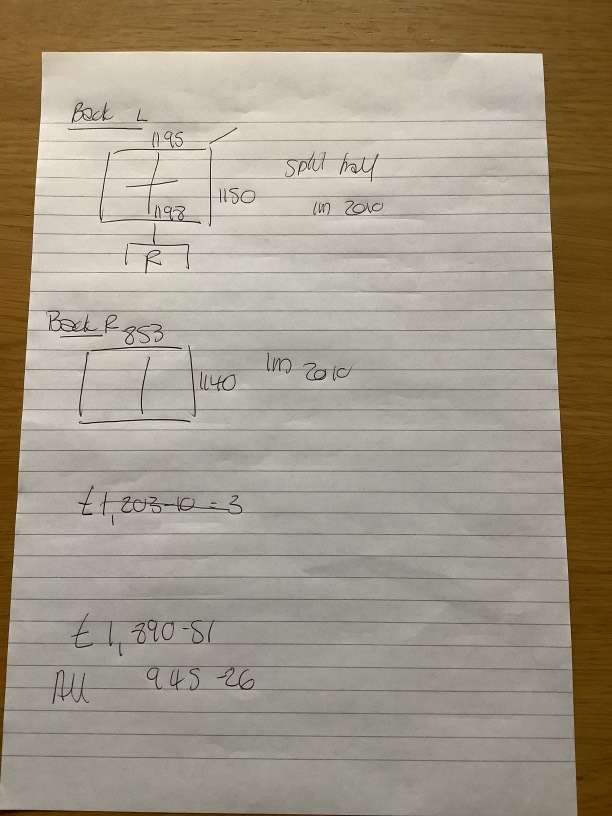 Back L
1195
Split half
1150
1198
1m 2010
R
Back R
853
1140
1m 2010
£1,203-10 = 3
£1,890-51
All 945-26